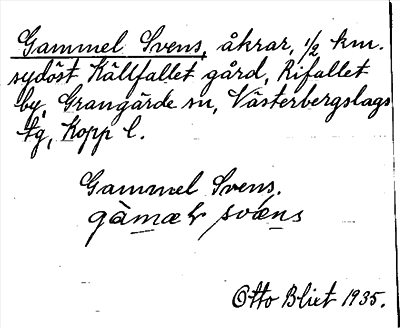 Gammel Svens, åkrar, 1/2 km.
sydöst Källfallet gård, Rifallet
by, Grangärde sn, Västerbergslags
tg, Kopp l.
Gammel Svens.
gàmæl svæns
Otto Blixt 1935.